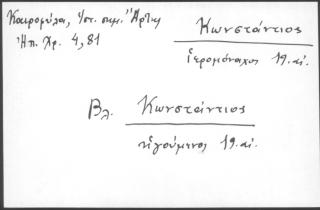 Καιρομύλα, Ἱστ. σημ. Ἄρτης
Ἠπ. Χρ. 4, 81
Κωνστάντιος
ἱερομόναχος 19. αἰ.
Βλ. Κωνστάντιος
ἡγούμενος 19. αἰ.